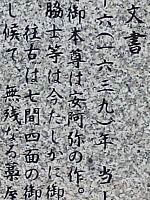 文書
一六（一六二九）年 当
御本尊は安阿弥の作。
脇士等は今たしかに御
往古は七間四面の御
し候て、無残なる藁屋